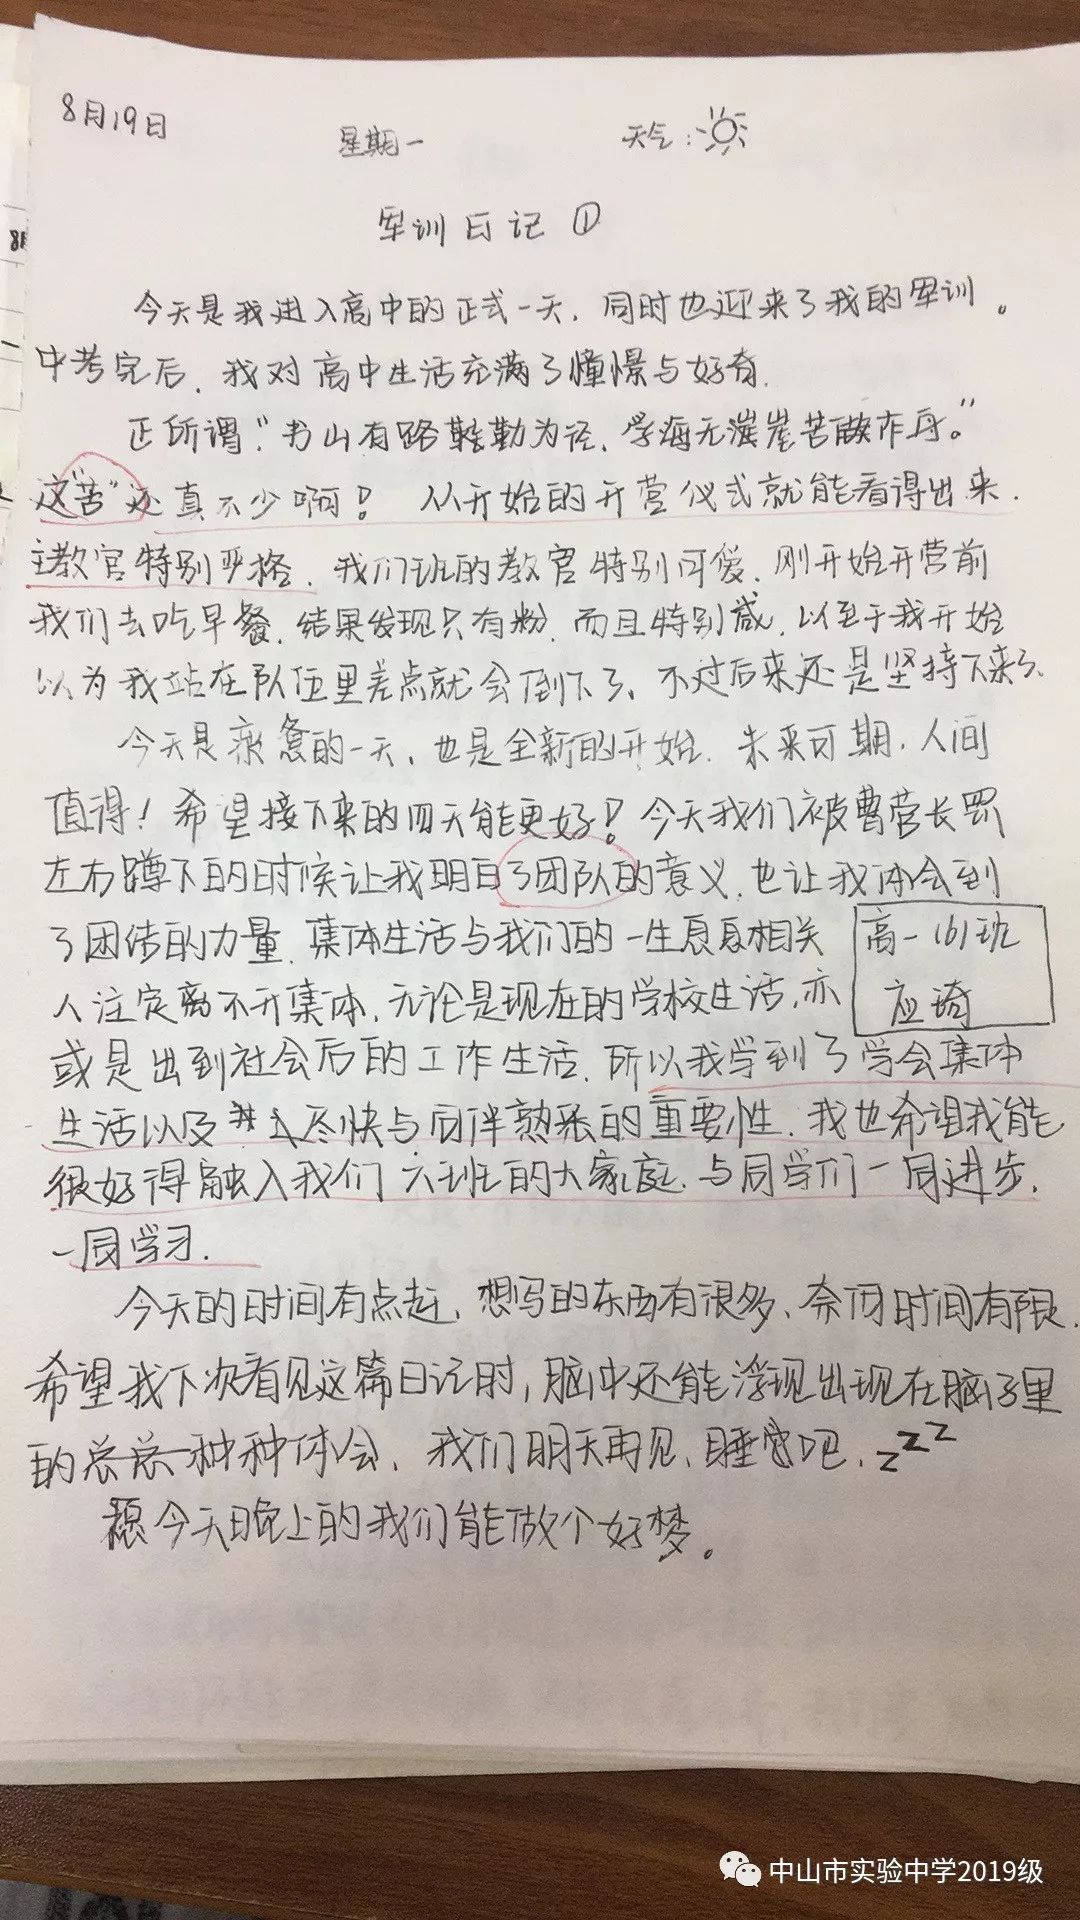 8月19日
星期一
天气:
军训日记①
今天是我进入高中的正式一天,同时也迎来了我的军训。
中考完后,我对高中生活充满了憧憬与好奇.
正所谓:"书山有路勤为径,学海无崖苦作舟。"
这"苦"还真不少啊!从开始的开营仪式就能看得出来.
主教官特别严格.我们班的教官特别可爱.刚开始开营前
我们去吃早餐.结果发现只有粉.而且特别咸.以至于我开始
以为我站在队伍里差点就会倒下了、不过后来还是坚持下来了、
今天是疲惫的一天,也是全新的开始.未来可期.人间
值得!希望接下来的四天能更好!今天我们被曹营长罚
左右蹲下的时候让我明白了团队的意义.也让我体会到
了团结的力量.集体生活与我们的一生息息相关
高一(6)班
应琦
人注定离不开集体.无论是现在的学校生活,亦
或是出到社会后的工作生活.所以我学到了学会集体
生活以及尽快与同伴熟悉的重要性.我也希望我能
很好得融入我们六班的大家庭.与同学们一同进步.
一同学习.
今天的时间有点赶,想写的东西有很多、奈何时间有限.
希望我下次看见这篇日记时,脑中还能浮现出现在脑子里
的总总一种种体会、我们明天再见、睡觉吧.zzz
愿今天晚上的我们能做个好梦。
8月
中山市实验中学2019级